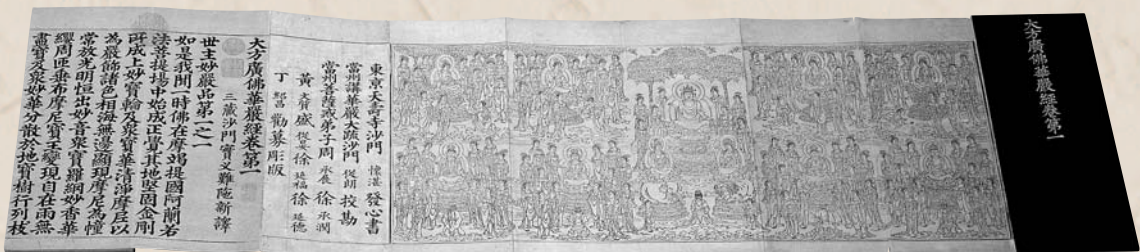 大方廣佛華嚴經卷第一
東京天壽寺沙門 懷湛 發心書
常州講華嚴大疏沙門 從朗 挍勘
常州菩薩戒弟子周 承展 徐 承潤
黃 盛 徐 延福 徐 延德
丁 勸募彫版
大方廣佛華嚴經卷第一
三藏沙門實叉難陁新譯
世主妙嚴品第一之一
如是我聞一時佛在摩竭提國阿蘭若
法菩提場中始成正覺其地堅固金剛
所成上妙寶輪及衆寶華清淨摩尼以
為嚴飾諸色相海無邊顯現摩尼為幢
常放光明恒出妙音衆寶羅網妙香華
纓周匝垂布摩尼寶王變現自在雨無
盡寶及衆妙華分散於地寶樹行列枝